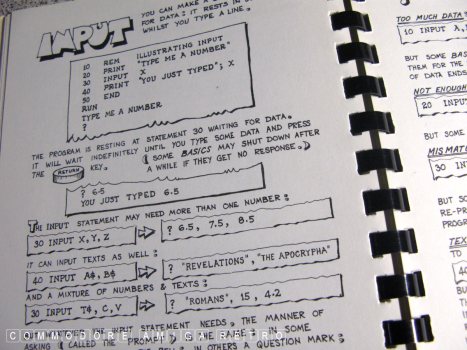 YOU CAN MAKE A
INPUT
FOR DATA: IT RESTS IN
WHILST YOU TYPE A LINE.
10 REM ILLUSTRATING INPUT
20 PRINT "TYPE ME A NUMBER"
30 INPUT X
40 PRINT "YOU JUST TYPED"; X
50 END
RUN
TYPE ME A NUMBER
?
THE PROGRAM IS RESTING AT STATEMENT 30 WAITING FOR DATA.
IT WILL WAIT INDEFINITELY UNTIL YOU TYPE SOME DATA AND PRESS
THE RETURN KEY. (SOME BASICS MAY SHUT DOWN AFTER
A WHILE IF THEY GET NO RESPONSE.)
? 6.5
YOU JUST TYPED 6.5
THE INPUT STATEMENT MAY NEED MORE THAN ONE NUMBER:
30 INPUT X,Y,Z
? 6.5, 7.5, 8.5
IT CAN INPUT TEXTS AS WELL:
40 INPUT A$, B$
? "REVELATIONS", "THE APOCRYPHA"
AND A MIXTURE OF NUMBERS & TEXTS:
30 INPUT T$, C, V
? "ROMANS", 15, 4.2
THE INPUT STATEMENT NEEDS, THE MANNER OF
ASKING (CALLED THE PROMPT) IN SOME
IN OTHERS A QUESTION MARK;
COMMODORE AMIGA RETRO
TOO MUCH DATA
10 INPUT A,
BUT SOME BAS
THEM FOR THE
OF DATA ENDS
NOT ENOUGH
20 INPUT
BUT SOME
MISMAT
30 IN
BUT SO
RE-PR
PROGR
TEX
TO
40